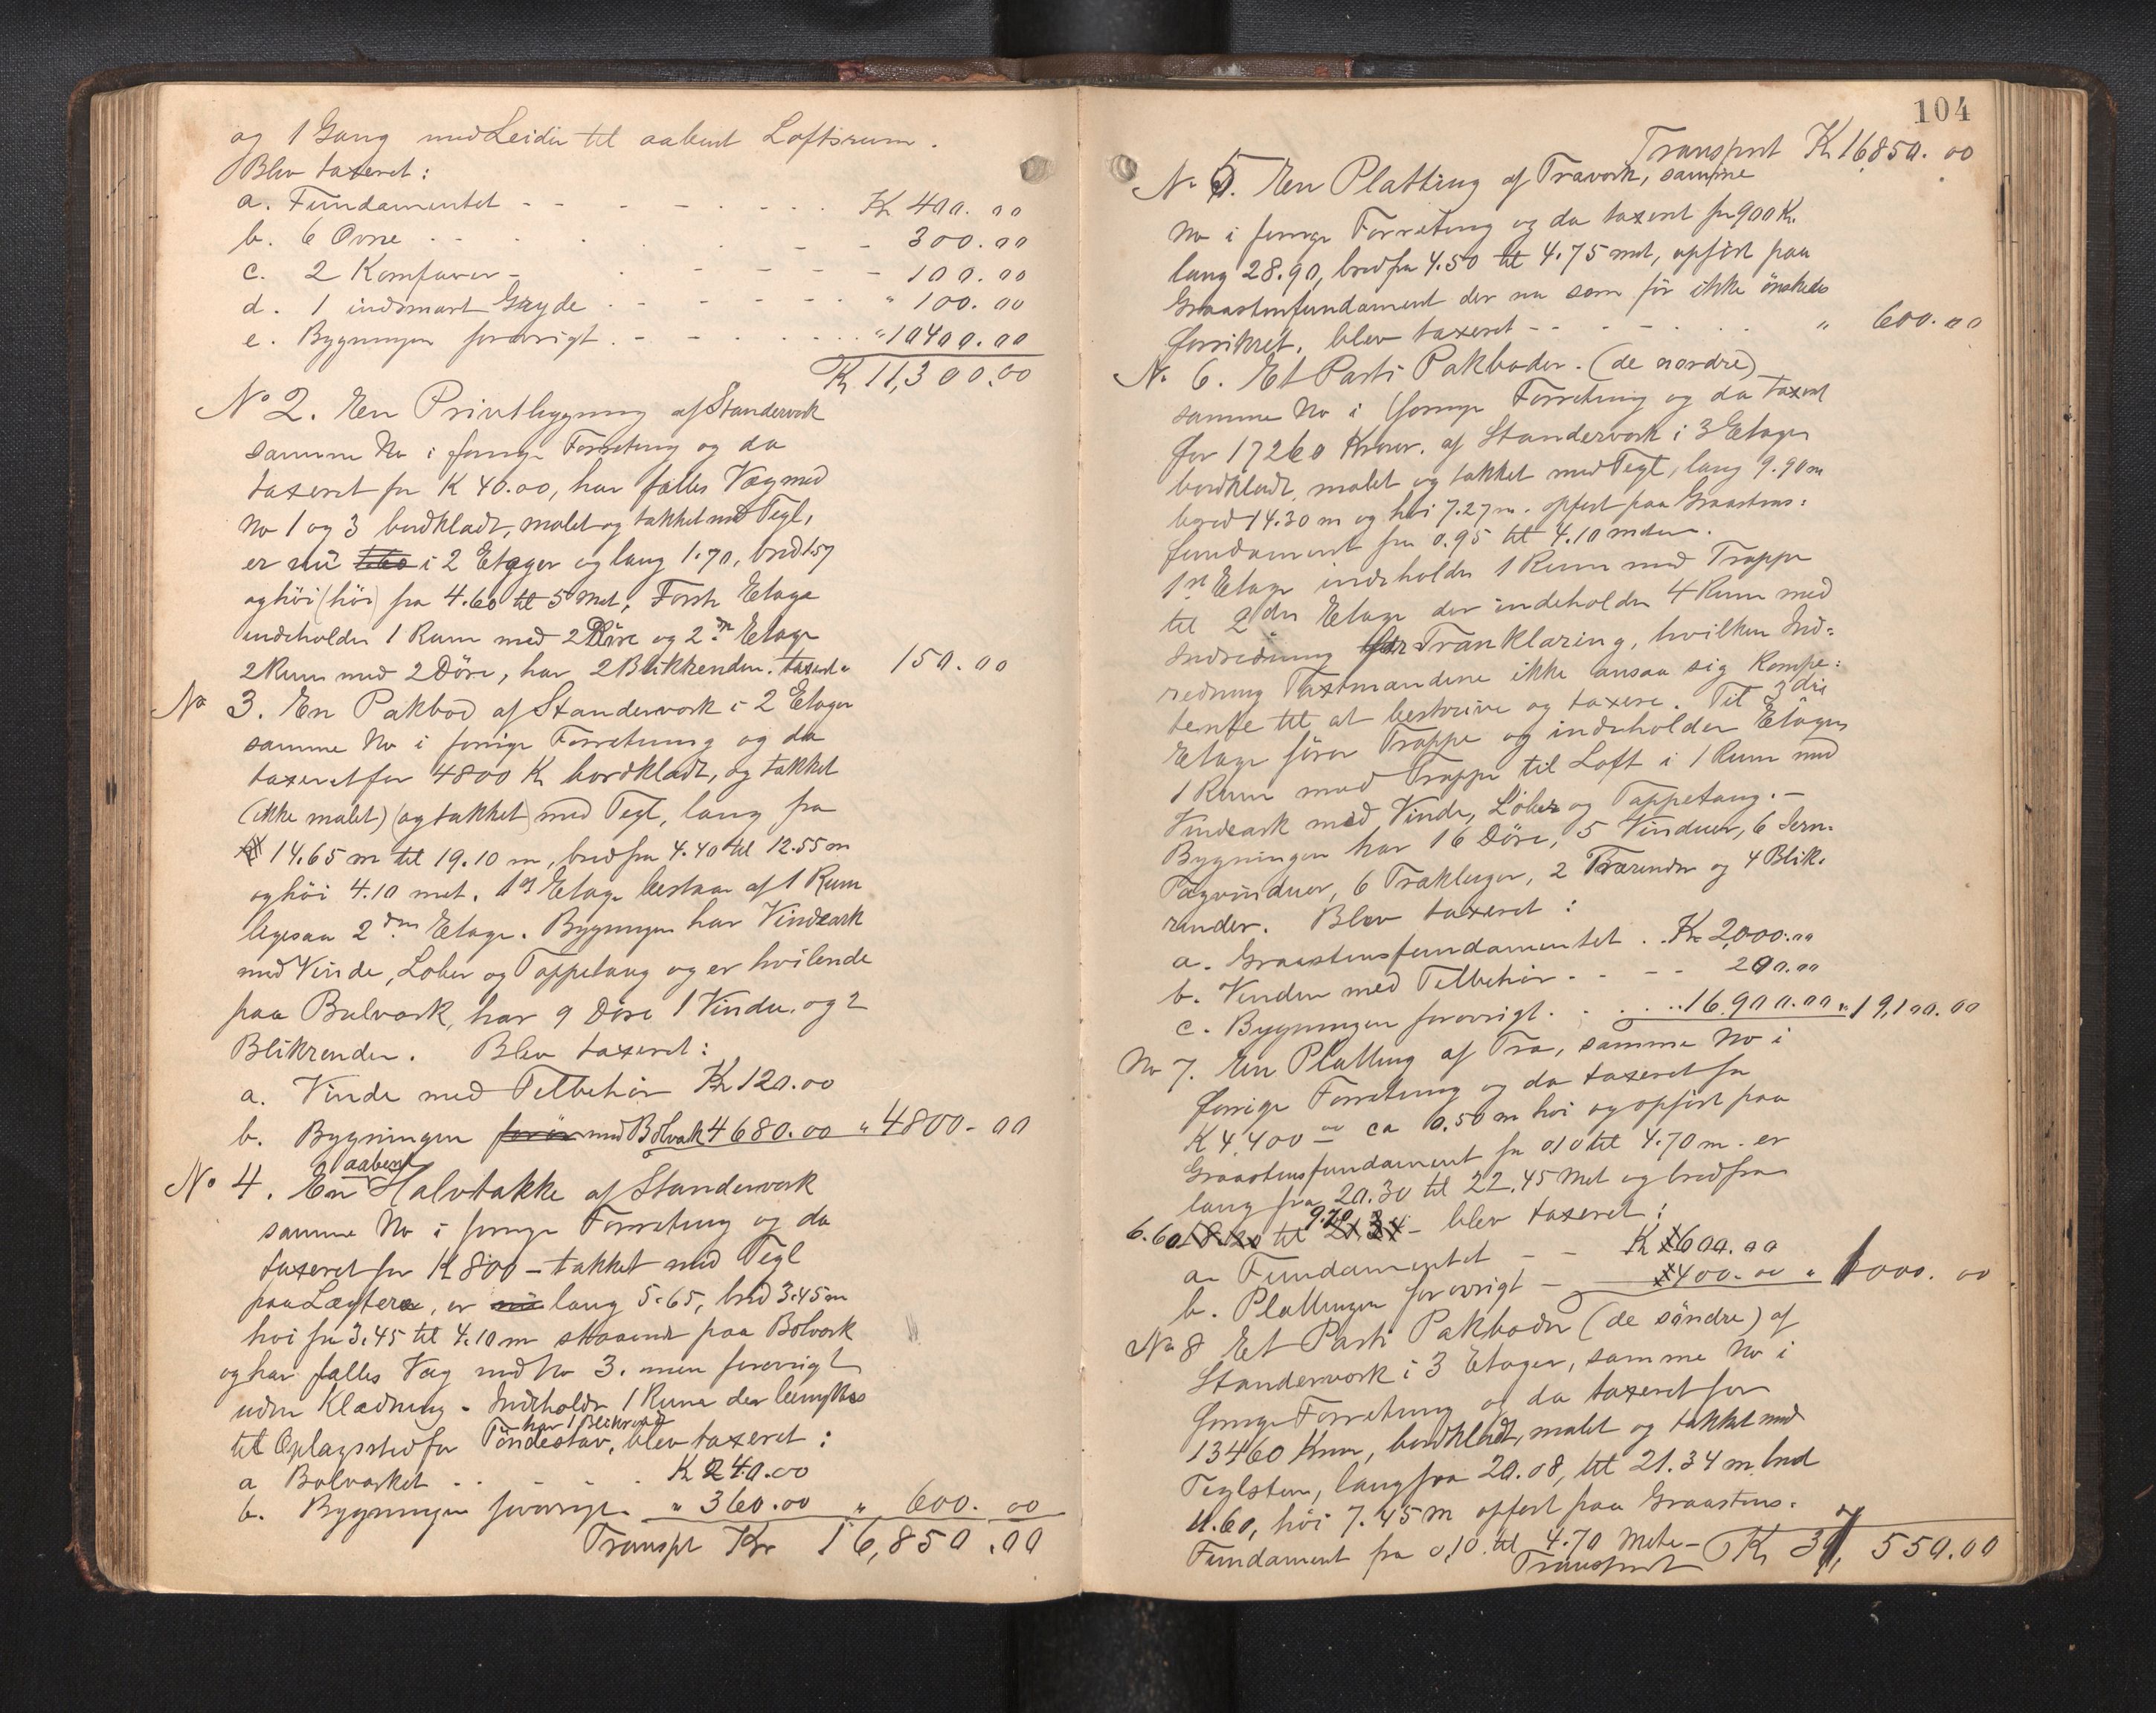 og 1 Gang med Leider til aabent Loftsrum.
Blev taxeret:
a. Fundamentet - - - - - Kr 400.00
b. 6 Ovne - - - - 300.00
c. 2 Komfurer - - - - - 100.00
d. 1 indmurt Gryde - - - - " 100.00
e. Bygningen forøvrigt - - - - " 10400.00
Kr. 11,300.00
No 2. En Privtbygning af Standerværk
samme No i forrige Forretning og da
taxeret for K 40.00, har fælles Væg med
No 1 og 3 bordklædt, malet og tækket med Tegl,
er nu i 2 Etager og lang 1.70, bred 1.57
og høi (høi) fra 4.60 til 5 Met, Første Etage
indeholder 1 Rum med 2 Döre og 2den Etage
2 Rum med 2 Döre, har 2 Blikkrender. taxert " 150.00
No 3. En Pakbod af Standerværk i 2 Etager
samme No i forrige Forretning og da
taxeret for 4800 Kr bordklædt, og tækket
(ikke malet) (og tækket) med Tegl, lang fra
14.65 m til 19.10 m, bred fra 4.40 til 12.55 m
og høi 4.10 met. 1st Etage bestaar af 1 Rum
ligesaa 2den Etage. Bygningen har Vindeark
med Vinde, Løber og Tappetaug og er hvilende
paa Bulværk, har 9 Döre 1 Vindu. og 2
Blikrender. Blev taxeret:
a. Vinde med Tilbehør Kr 120.00
b. Bygningen forøv med Bolværk 4680.00 " 4800.00
aabent
No 4. En Halvtække af Standerværk
samme No i forrige Forretning og da
taxeret for K 800 - tækket med Tegl
paa Lægter, er nu lang 5.65, bred 3.45 m
høi fra 3.45 til 4.10 m staaende paa Bolværk
og har fælles Væg med No 3. men forøvrigt
uden Klædning. Indeholder 1 Rum der benyttes
har 1 Blikrende
til Oplagssted for Töndestav, blev taxeret:
a Bolværket - - - - K 240.00
b. Bygningen forøvrigt " 360.00 " 600.00
Transpt Kr 16,850.00
104
Transport Kr 16,850.00
No 5. En Platting af Træværk, samme
No i forrige Forretning og da taxeret for 900 Kr.
lang 28.90, bred fra 4.50 til 4.75 met, opført paa
Graastensfundament der nu som før ikke ønskedes
forsikret, blev taxeret - - - - " 600.00
No 6. Et Parti Pakboder. (de nordre)
samme No i forrige Forretning og da taxert
for 17260 Kroner. af Standerværk i 3 Etager
bordklædt, malet og tækket med Tegl, lang 9.90 m
bred 14.30 m og høi 7.27 m. opført paa Graastens:
fundament fra 0.95 til 4.10 meter.
1st Etage indeholder 1 Rum med Trappe
til 2den Etage der indeholder 4 Rum med
Indredning for Tranklaring, hvilken Ind:
redning Taxtmændene ikke ansaa sig kompe:
tente til at beskrive og taxere. Til 3die
Etage fører Trappe og indeholder Etagen
1 Rum med Trappe til Loft i 1 Rum med
Vindeark med Vinde, Løber og Tappetaug. -
Bygningen har 16 Döre, 5 Vinduer, 6 Jern-
Tagvinduer, 6 Trækluger, 2 Trærender og 4 Blik-
render. Blev taxeret:
a. Graastensfundamentet . . Kr 2000.00
b. Vinden med Tilbehør - - - 200.00
c. Bygningen forøvrigt - - - 16,900.00 " 19,100.00
No 7. En Platting af Træ, samme No i
forrige Forretning og da taxeret for
K 4,400 00 ca 0.50 m høi og opført paa
Graastensfundament fra 0,10 til 4.70 m. er
lang fra 20.30 til 22.45 Met og bred fra
6.60 til 9.20 - blev taxeret:
a. Fundamentet - - K 600.00
b. Plattingen forøvrigt - 400.00 " 1000.00
No 8 Et Parti Pakboder (de söndre) af
Standerværk i 3 Etager, samme No i
forrige Forretning og da taxeret for
13460 Kroner, bordklædt, malet og tækket med
Teglsten, lang fra 20.08, til 21.34 m. bred
11.60, høi 7.45 m opført paa Graastens-
Fundament fra 0,10 til 4.70 Meter -
Transport Kr 37,550.00